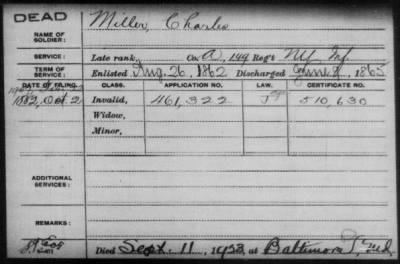 DEAD
NAME OF SOLDIER: Miller, Charles
SERVICE: Late rank, Co. A, 149 Reg't NY Inf.
TERM OF SERVICE: Enlisted Aug. 26, 1862 Discharged June 8, 1865
DATE OF FILING. CLASS. APPLICATION NO. LAW. CERTIFICATE NO.
1882, Oct. 2 Invalid, 461,322 510,630
Widow,
Minor,
ADDITIONAL SERVICES:
REMARKS:
Died Sept. 11, 1923, at Baltimore, Md.